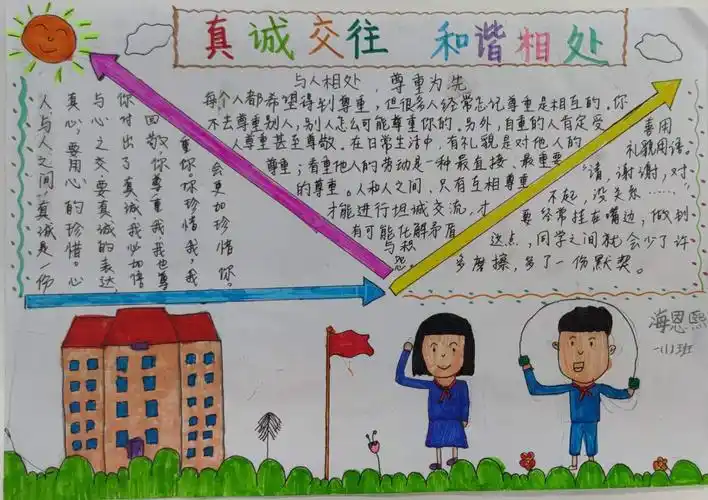 真诚交往 和谐相处
与人相处，尊重为先
每个人都希望得到尊重，但很多人经常忘记尊重是相互的，你
不去尊重别人，别人怎么可能尊重你的。另外，自重的人肯定受
人尊重甚至尊敬。在日常生活中，有礼貌是对他人的
尊重；看重他人的劳动是一种最直接、最重要
的尊重。人和人之间，只有互相尊重
才能进行坦诚交流，才
有可能化解矛盾
与积
怨。
人与人之间，真诚是一份
真心，要用心的珍惜。心
与心之交要真诚的表达，
你付出了真诚，我必加倍
回敬你。你尊重我，我也尊
重你。你珍惜我，我
会更加珍惜你。
喜用
礼貌用语。
“请，谢谢，对
不起，没关系……”
要经常挂在嘴边，做到
这点，同学之间就会少了许
多摩擦，多了一份默契。
海恩熙
一(1)班